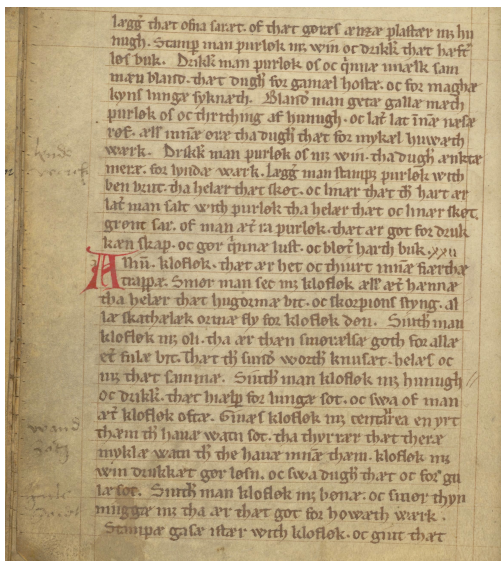 læggæ thæt ofna saræt. of thæt gøræs ænzæ plastær mz hu
nugh. Stampæ man purløk mz win oc drikk. thæt hæft
løs buk. Drikk man purløk os oc qinnæ miælk sam
mæn bland. thæt dugh for gamæl hostæ. oc for maghæ
kyns lungæ syknæth. Bland man getæ gallæ mæth
purløk os oc thrithing af hunugh. oc lat lat innæ næsæ
røf. æll innæ øræ tha dugh thæt for mykæl huwæth
wærk. Drikk man purløk os mz win. tha dugh ænktæ
meræ. for lyndæ wærk. Lægg man stampt purløk with
ben brut. tha helær thæt skøt. oc linær thæt th hart ær
lat man salt with purløk tha helær thæt oc linær skøt.
gront sar. of man æt ra purløk. thæt ær got for druk
kæn skap. oc gør qinnæ lust. oc bløt harth buk. xxii
Allin. kløfløk. thæt ær het oc thiurt innæ fiærthæ
trappæ. Smør man sec mz kløfløk æll æt hænnæ
tha helær thæt hugormæ bit. oc skorpions styng. al
læ skathælæk ormæ fly for kløfløk døn. Siuth man
kløfløk mz oli. tha ær thæn smørelsæ goth for allæ
et fulæ bit. Thæt th sund worth knusæt. helæs oc
mz thæt sammæ. Siuth man kløfløk mz hunugh
oc drikk. thæt hiælp for lungæ sot. oc swa of man
æt kløfløk oftæ. Gifnæs kløfløk mz centauræa en yrt
thæm th hauæ watn sot. tha thyrrær thæt theræ
myklæ watn th the hauæ innæ thæm. kløfløk mz
win drukkæt gør løsn. oc swa dugh thæt oc for gu
læ sot. Siuth man kløfløk mz bønæ. oc smør thyn
nuggæ mz tha ær thæt got for howæth wærk.
Stampæ gasæ istær with kløfløk. oc giut thæt